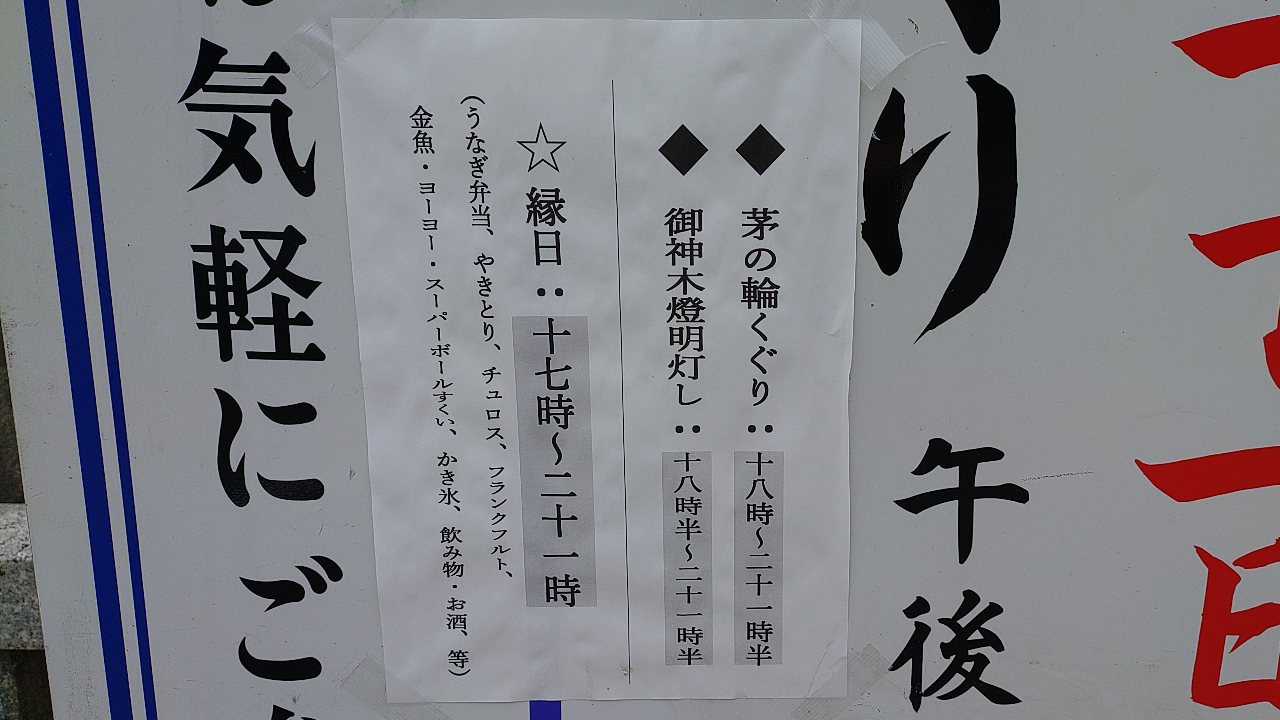 り 午後
◆ 茅の輪くぐり：十八時～二十一時半
◆ 御神木燈明灯し：十八時半～二十一時半
☆縁日：十七時～二十一時
(うなぎ弁当、やきとり、チュロス、フランクフルト、
金魚・ヨーヨー・スーパーボールすくい、かき氷、飲み物・お酒、等)
気軽にご